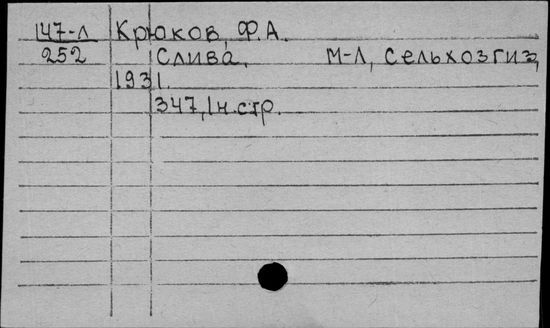 147-Л Крюков, Ф.А.
252 Слива. М-Л, Сельхозгиз,
1931.
347, 1 н.стр.